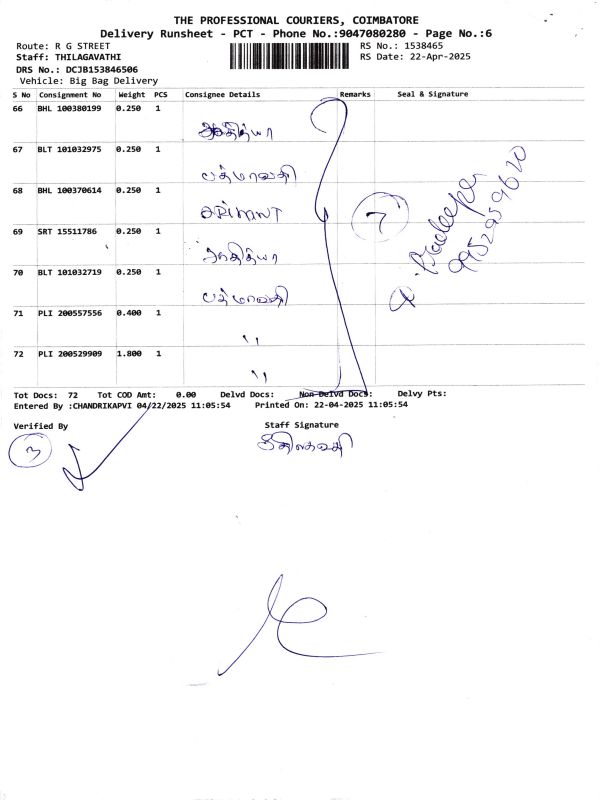 THE PROFESSIONAL COURIERS, COIMBATORE
Delivery Runsheet - PCT - Phone No.:9047080280 - Page No.:6
Route: R G STREET
Staff: THILAGAVATHI
DRS No.: DCJB153846506
Vehicle: Big Bag Delivery
RS No.: 1538465
RS Date: 22-Apr-2025
S No Consignment No Weight PCS Consignee Details Remarks Seal & Signature
66 BHL 100380199 0.250 1
ஆதித்யா
67 BLT 101032975 0.250 1
பத்மாவதி
68 BHL 100370614 0.250 1
69 SRT 15511786 0.250 1
ஆதித்யா
70 BLT 101032719 0.250 1
பத்மாவதி
71 PLI 200557556 0.400 1
"
72 PLI 200529909 1.800 1
"
7
Pradeepa
9952959620
Tot Docs: 72 Tot COD Amt: 0.00 Delvd Docs: Non Delvd Docs: Delvy Pts:
Entered By :CHANDRIKAPVI 04/22/2025 11:05:54 Printed On: 22-04-2025 11:05:54
Verified By Staff Signature
3 திலகவதி